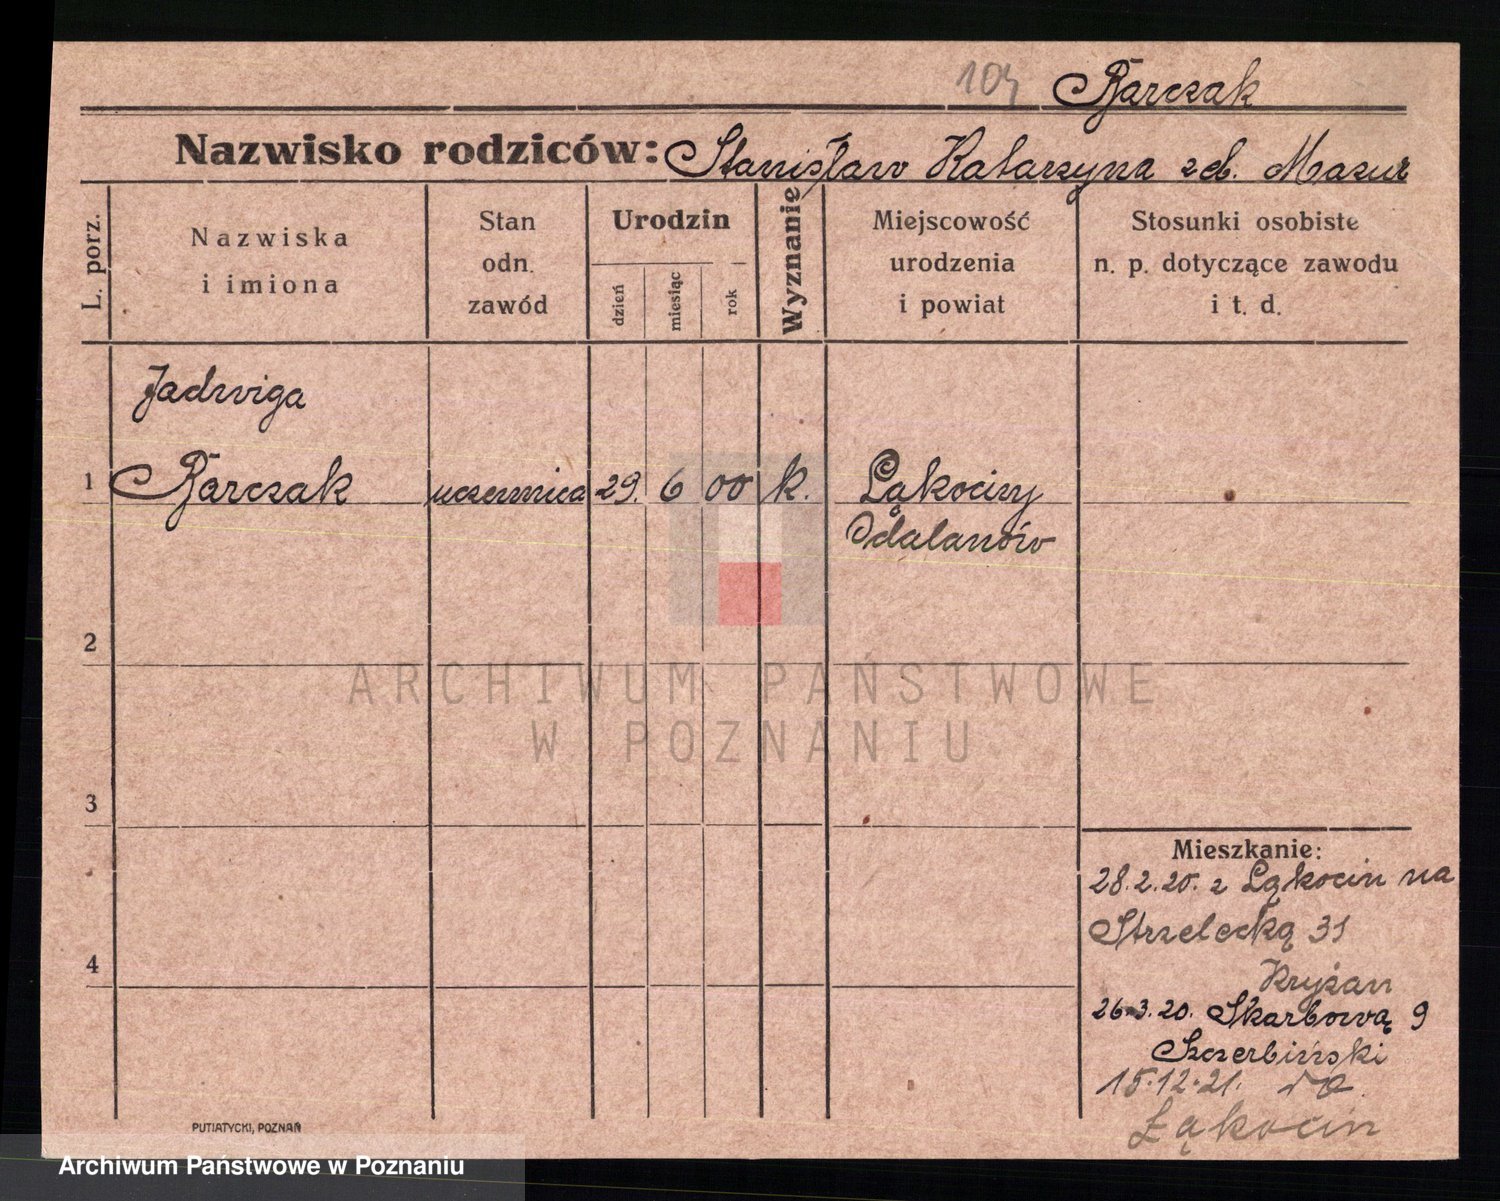 104 Barczak
Nazwisko rodziców: Stanisław Katarzyna zd. Mazur
L. porz.
Nazwiska
i imiona
Stan
odn.
zawód
Urodzin
dzień
miesiąc
rok
Wyznanie
Miejscowość
urodzenia
i powiat
Stosunki osobiste
n. p. dotyczące zawodu
i t. d.
Jadwiga
1 Barczak uczennica 29. 6 00 k. Łąkociny
Odalanów
2
ARCHIWUM PAŃSTWOWE
W POZNANIU
3
Mieszkanie:
28.2.20. z Łąkocin na
Strzelecką 31
Kryżan
4
26.3.20. Skarbową 9
Szczerbiński
15.12.21. do
Łąkocin
PUTIATYCKI, POZNAŃ
Archiwum Państwowe w Poznaniu